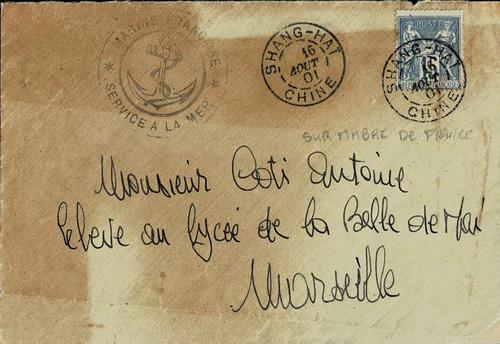 MARINE FRANÇAISE
* SERVICE A LA MER *
SHANG-HAÏ
16
AOUT
01
CHINE
POSTE
SHANG-HAÏ
16
AOUT
01
CHINE
SUR TIMBRE DE FRANCE
Monsieur Coti Antoine
Elève au Lycée de la Belle de Mai
Marseille